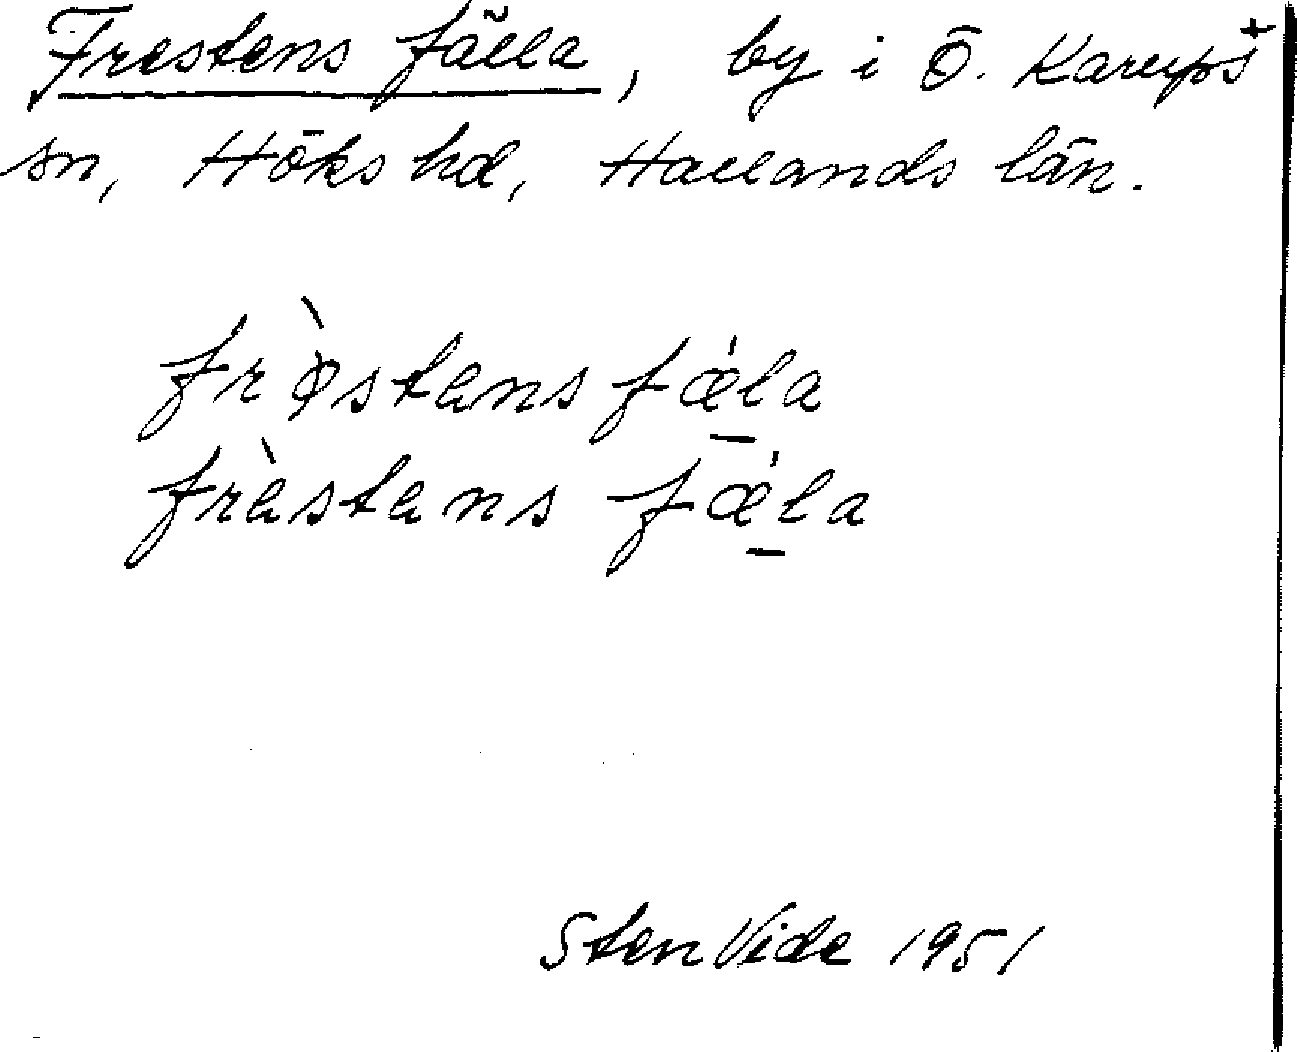 Frestens fälla, by i Ö. Karups+
sn, Höks hd, Hallands län.
frə̀stens fǽ̠la
frèstens fǽ̠la
Sten Vide 1951